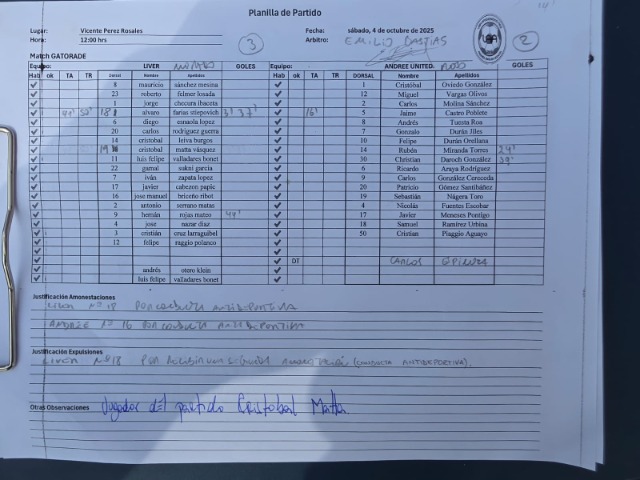 Planilla de Partido
Lugar: Vicente Perez Rosales Fecha: sábado, 4 de octubre de 2025
Hora: 12:00 hrs Arbitro: EMILIO BASTIAS
3 2
Match GATORADE
Equipo: LIVER GOLES Equipo: ANDREE UNITED ROJO GOLES
Hab ok TA TR Dorsal Nombre Apellidos Hab ok TA TR DORSAL Nombre Apellidos
8 mauricio sánchez mesina 1 Cristóbal Oviedo González
23 roberto felmer losada 12 Miguel Vargas Olivos
1 jorge checura ibaceta 2 Carlos Molina Sánchez
18 alvaro farias stiepovich 3' 37' 16' 5 Jaime Castro Poblete
6 diego esnaola lopez 8 Andrés Tuesta Roa
20 carlos rodriguez guerra 7 Gonzalo Durán Jiles
14 cristobal leiva burgos 10 Felipe Durán Orellana
19 cristobal matta vásquez 14 Rubén Miranda Torres 24'
11 luis felipe valladares bonet 30 Christian Daroch González
22 gamal sukni garcia 6 Ricardo Araya Rodríguez
7 iván zapata lopez 9 Carlos González Cereceda
17 javier cabezon papic 20 Patricio Gómez Santibáñez
16 jose manuel briceño ribot 19 Sebastián Nágera Toro
2 antonio serrano matas 4 Nicolás Fuentes Escobar
9 hernán rojas mateo 17 Javier Meneses Pontigo
4 josé nazar diaz 18 Samuel Ramírez Urbina
3 cristián cruz larraguibel 50 Cristian Piaggio Aguayo
12 felipe raggio polanco
DT CARLOS ESPINOZA
andrés otero klein
luis felipe valladares bonet
Justificación Amonestaciones
LIVER Nº 18 POR CONDUCTA ANTIDEPORTIVA
ANDREE Nº 16 POR CONDUCTA ANTIDEPORTIVA
Justificación Expulsiones
LIVER Nº 18 POR RECIBIR UNA SEGUNDA (CONDUCTA ANTIDEPORTIVA).
Otras Observaciones Jugador del partido Cristobal Matta